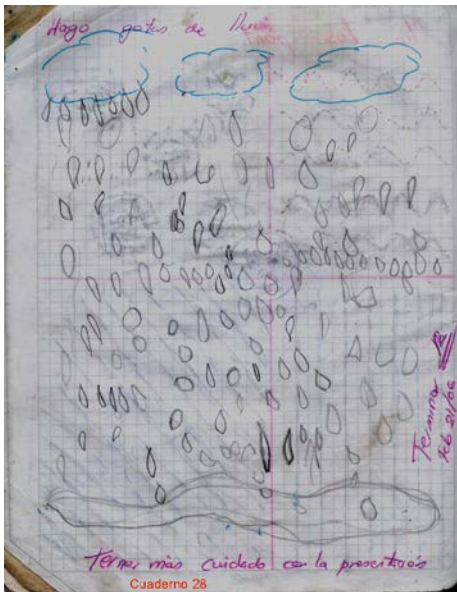 Hago gotas de lluvia
Terminar
Feb 21/06
Tener más cuidado con la presentación
Cuaderno 28